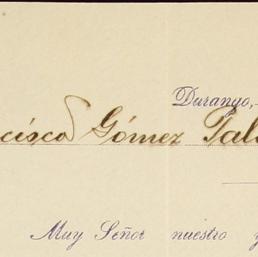 Durango,
cisco Gómez Pal
Muy Señor nuestro y